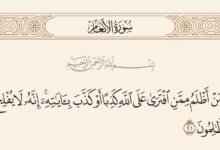 سُورَةُ الأَنْعَامِ
بِسْمِ اللَّهِ الرَّحْمَٰنِ الرَّحِيمِ
مَنْ أَظْلَمُ مِمَّنِ افْتَرَىٰ عَلَى اللَّهِ كَذِبًا أَوْ كَذَّبَ بِآيَاتِهِ ۗ إِنَّهُ لَا يُفْلِحُ
الظَّالِمُونَ ٢١